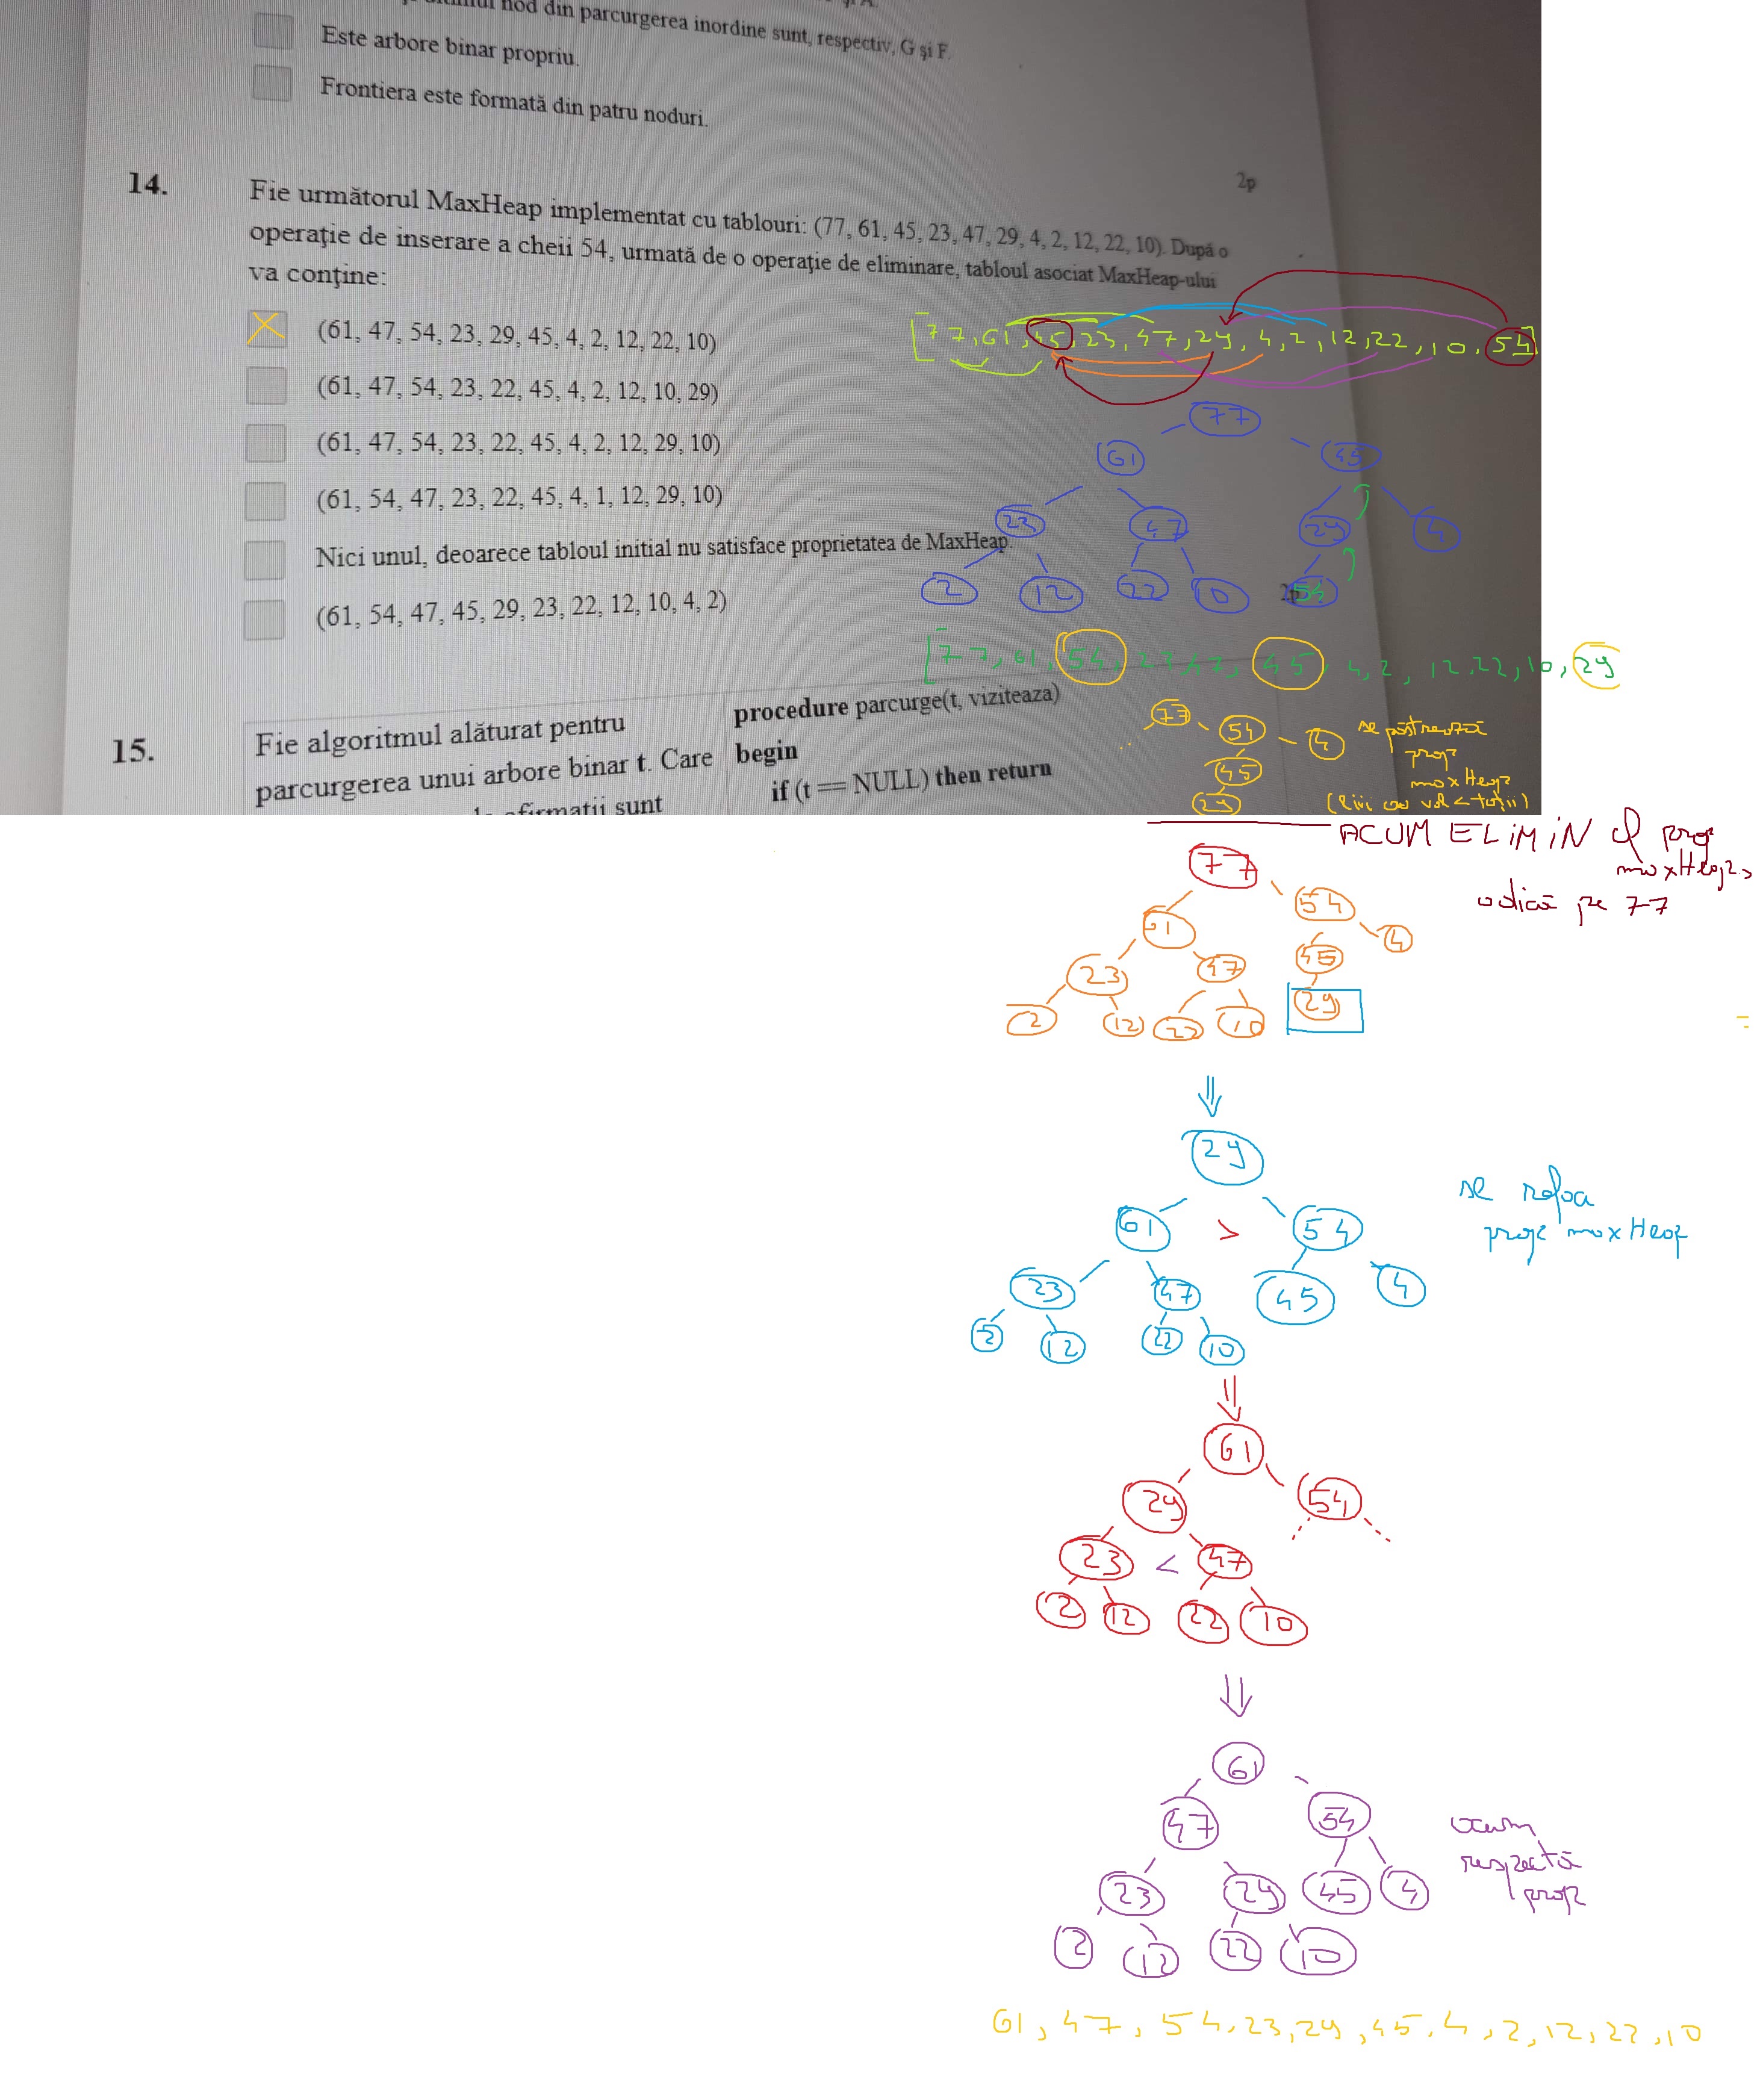 nod din parcurgerea inordine sunt, respectiv, G şi F.
Este arbore binar propriu.
Frontiera este formată din patru noduri.
2p
14.
Fie următorul MaxHeap implementat cu tablouri: (77, 61, 45, 23, 47, 29, 4, 2, 12, 22, 10). După o
operaţie de inserare a cheii 54, urmată de o operaţie de eliminare, tabloul asociat MaxHeap-ului
va conţine:
(61, 47, 54, 23, 29, 45, 4, 2, 12, 22, 10)
[77, 61, 45, 23, 47, 29, 4, 2, 12, 22, 10, 54]
(61, 47, 54, 23, 22, 45, 4, 2, 12, 10, 29)
77
(61, 47, 54, 23, 22, 45, 4, 2, 12, 29, 10)
61 45
(61, 54, 47, 23, 22, 45, 4, 1, 12, 29, 10)
23 47 29 4
Nici unul, deoarece tabloul initial nu satisface proprietatea de MaxHeap.
2 12 22 10 54
2p
(61, 54, 47, 45, 29, 23, 22, 12, 10, 4, 2)
[77, 61, 54, 23, 47, 45, 4, 2, 12, 22, 10, 29
15.
Fie algoritmul alăturat pentru
parcurgerea unui arbore binar t. Care
afirmatii sunt
procedure parcurge(t, viziteaza)
begin
if (t == NULL) then return
77 54 4
45
29
se păstrează
prop
maxHeap
ACUM ELIMIN
prop
maxHeap,
adică pe 77
77
61 54
23 47 45 4
2 12 22 10 29
29
61 > 54
23 47 45 4
2 12 22 10
se reface
prop maxHeap
61
29 54
23 < 47
2 12 22 10
61
47 54
23 29 45 4
2 12 22 10
acum
respectă
prop
61, 47, 54, 23, 29, 45, 4, 2, 12, 22, 10